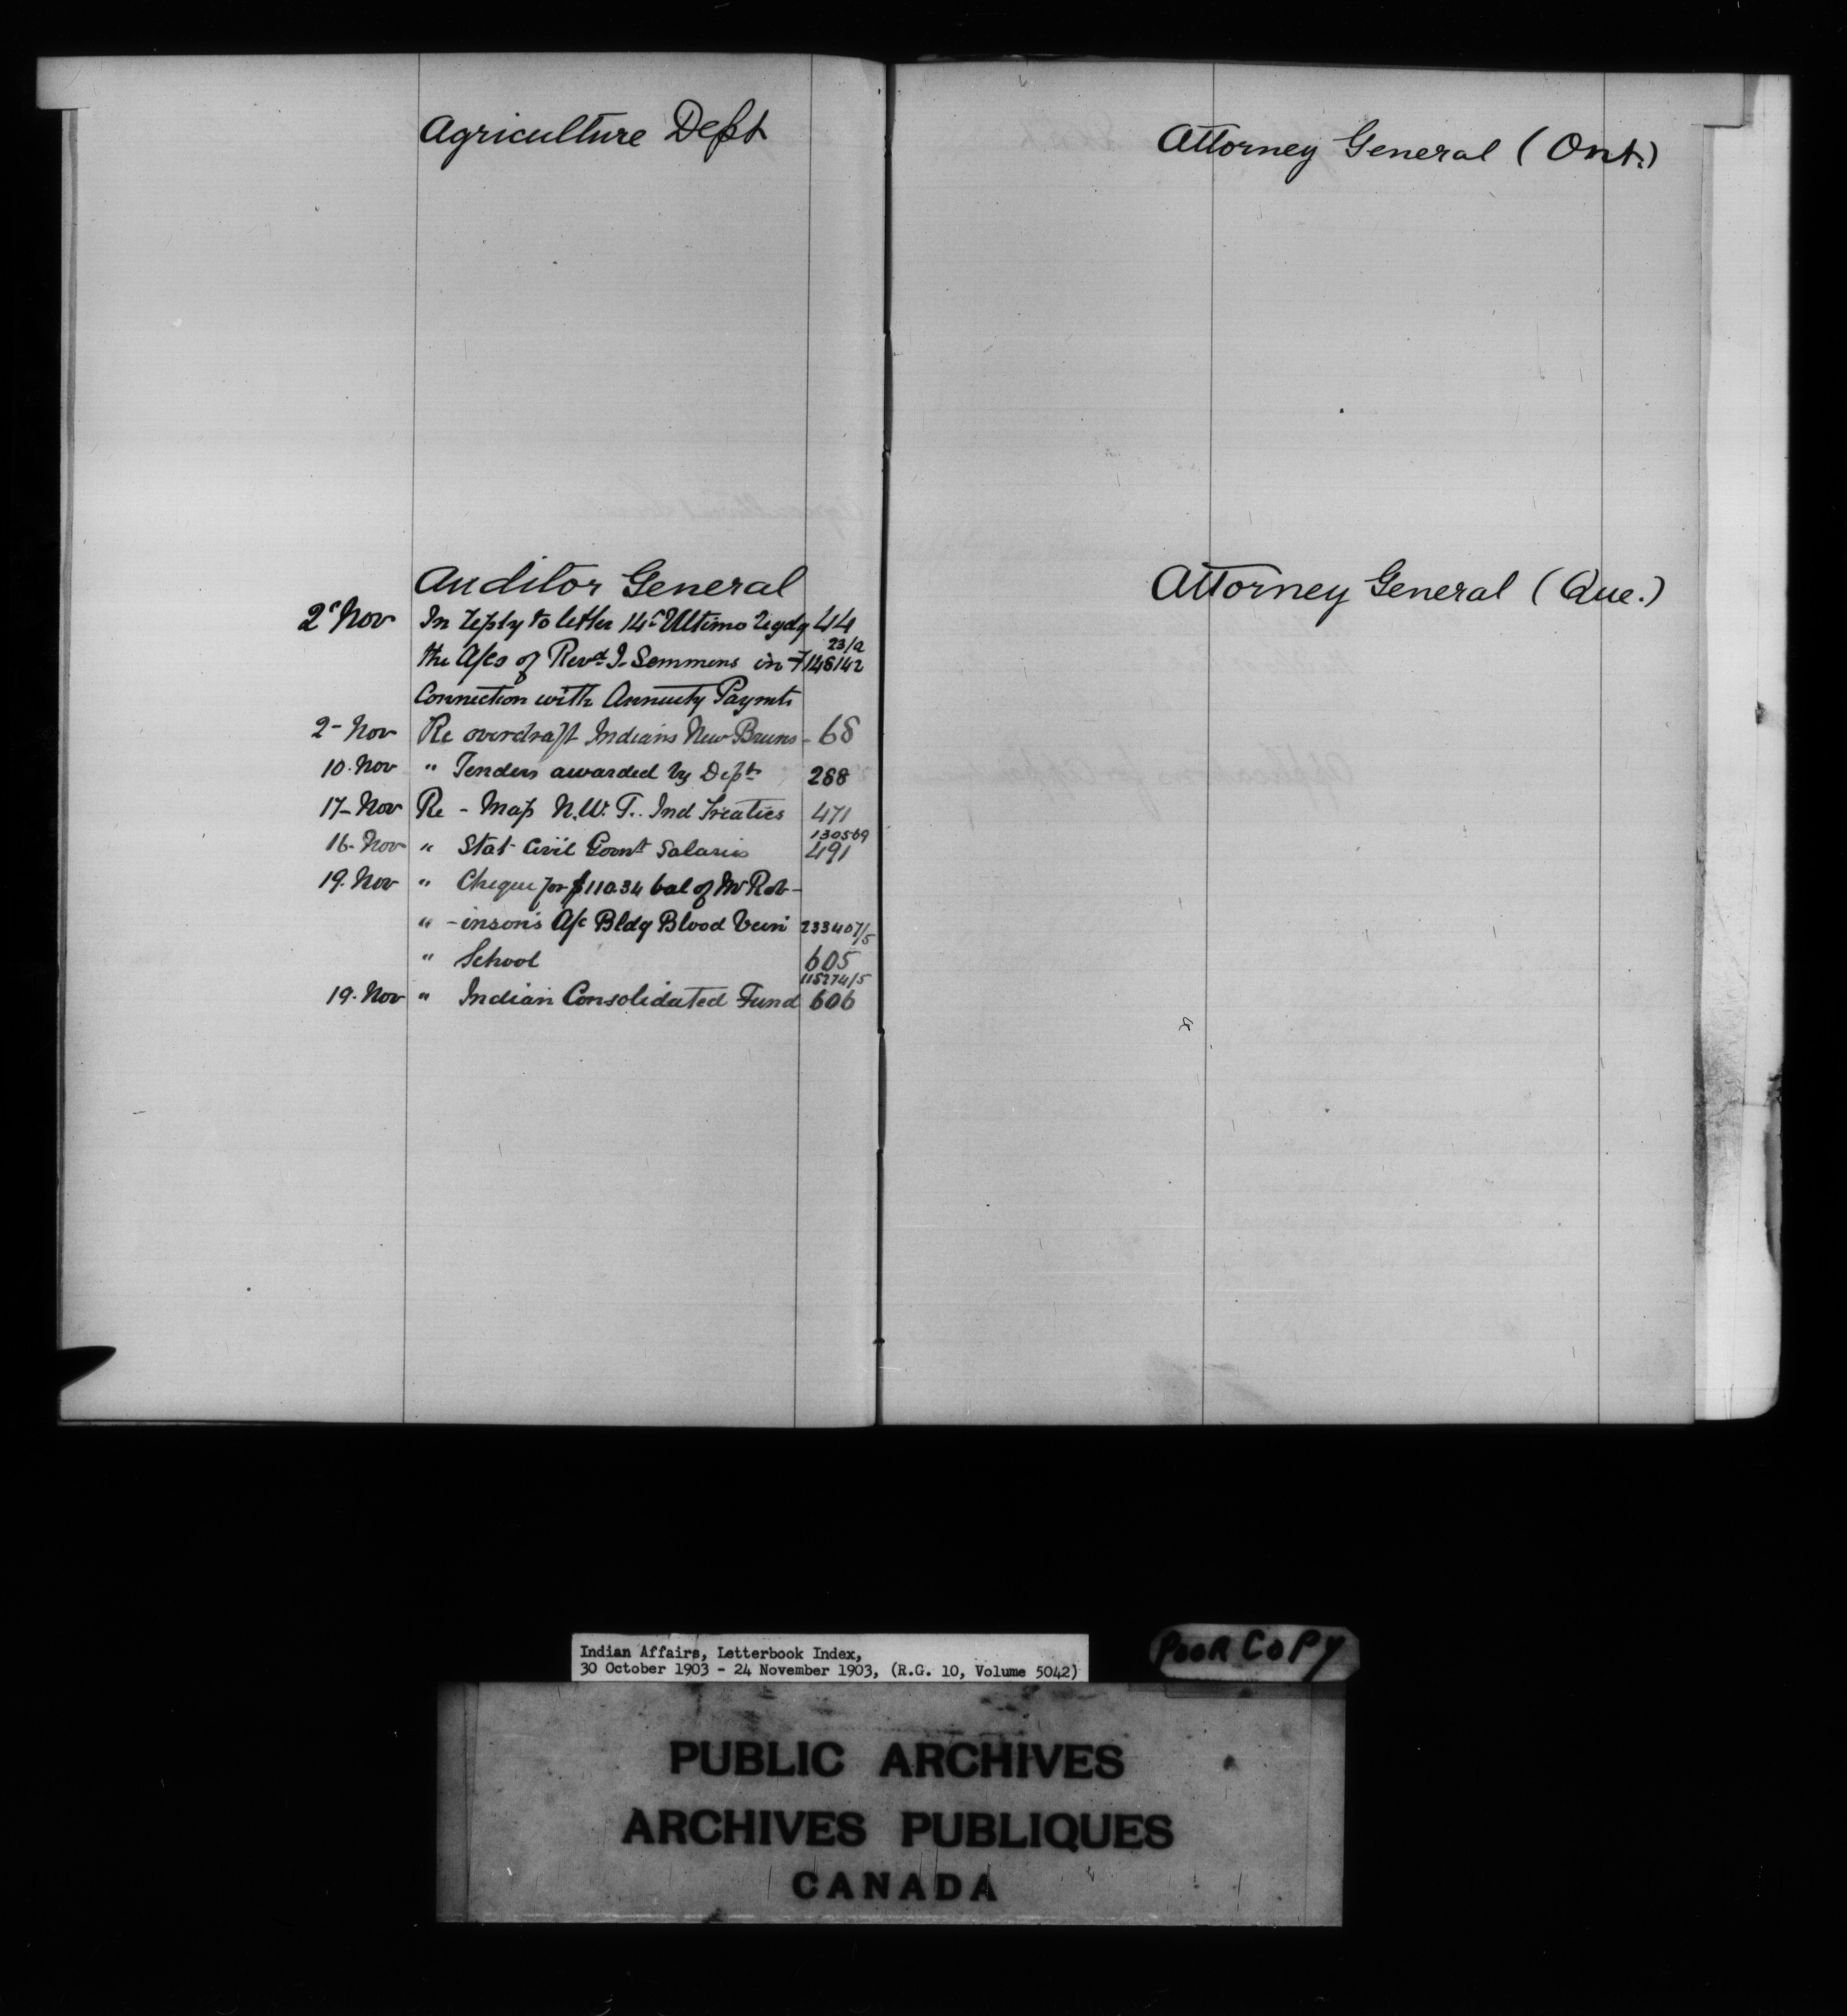 Agriculture Dept
Auditor General
2d Nov In reply to letter 14th Ultimo regdg 44
the A/cs of Revd J. Semmens in 23/2
148142
Connection with Annuity Paymts
2- Nov Re overdraft Indians New Bruns- 68
10. Nov " Tenders awarded by Dept 288
17- Nov Re - Map N.W.T. Ind Treaties 471
130569
16- Nov " Stat Civil Govnt Salaries 491
19. Nov " Cheque for $110.34 bal of Mr Rob-
" -inson's A/c Bldg Blood Vein 233407/5
" School 605
115274/5
19. Nov " Indian Consolidated Fund 606
Attorney General (Ont.)
Attorney General (Que.)
Indian Affairs, Letterbook Index,
30 October 1903 - 24 November 1903, (R.G. 10, Volume 5042)
POOR COPY
PUBLIC ARCHIVES
ARCHIVES PUBLIQUES
CANADA